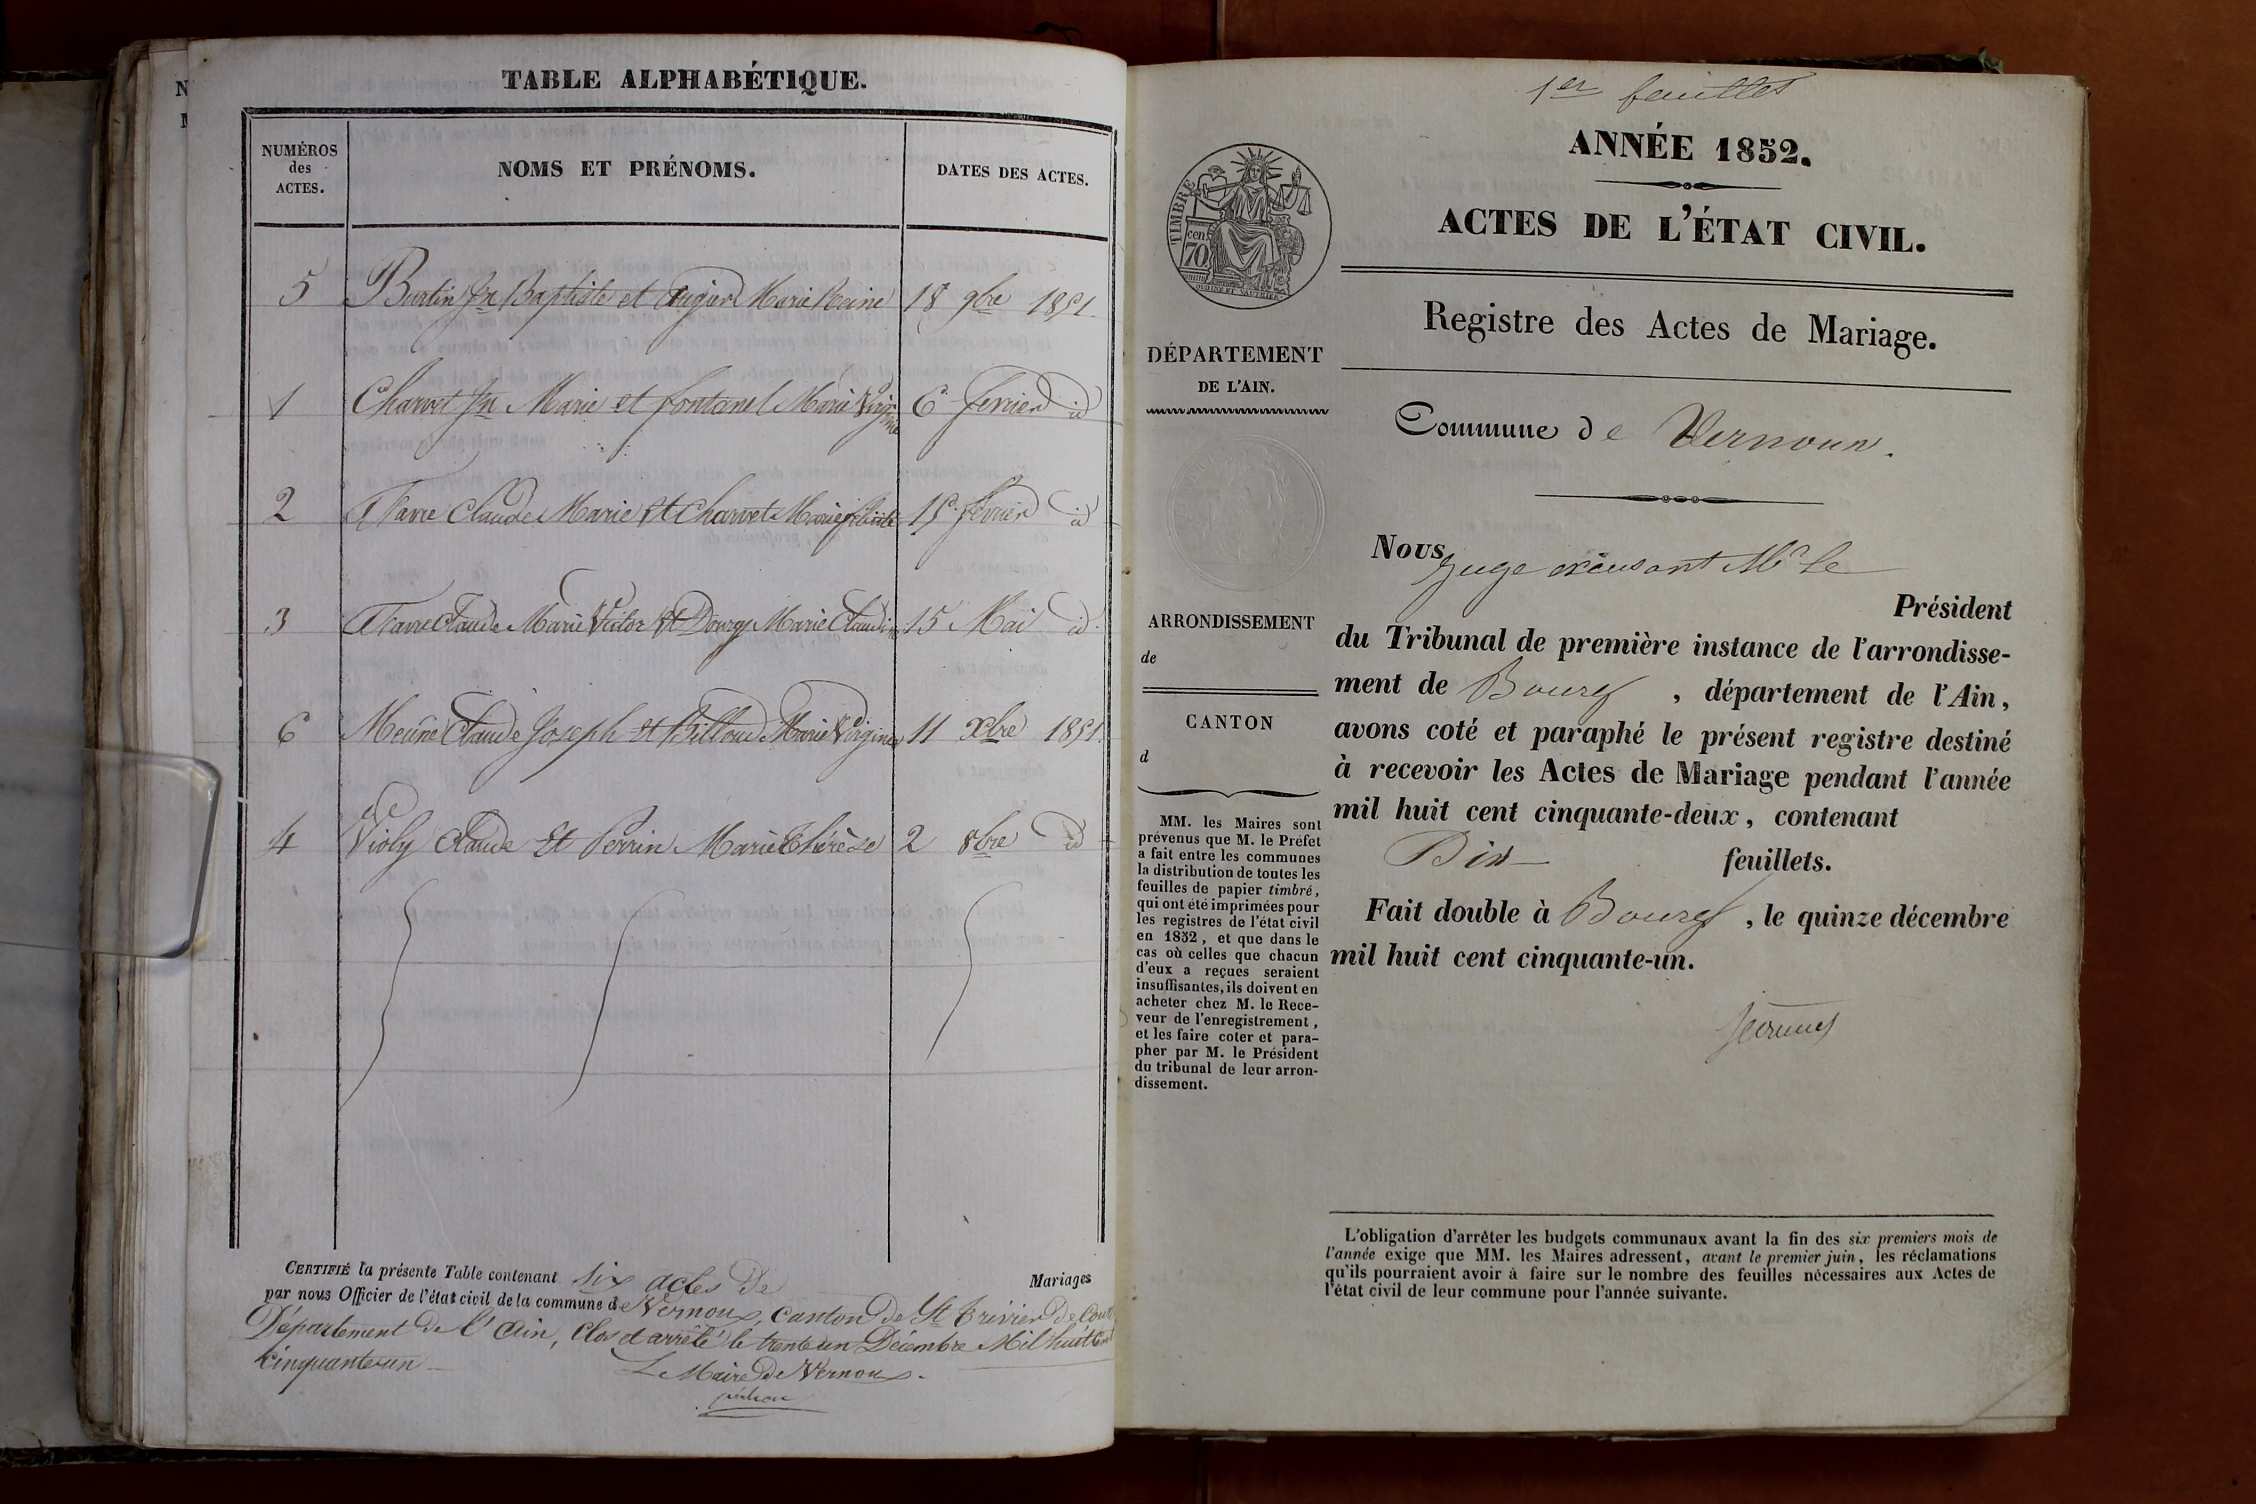 TABLE ALPHABÉTIQUE.
NUMÉROS
des
ACTES.
NOMS ET PRÉNOMS.
DATES DES ACTES.
5 Burtin Jn Baptiste et Augard Marie Reine 18 9bre 1851
1 Charvet Jn Marie et fontanel Marie Virginie 6 fevrier id
2 Favre Claude Marie et Charvet Marie 15 fevrier id
3 Favre Claude Marie Victor et Dourgy Marie Claudine 15 Mai id
6 Meûne Claude Joseph et Billoud Marie Virginie 11 xbre 1851
4 Violy Claude Et Perrin Marie Thérèse 2 8bre id
CERTIFIÉ la présente Table contenant six actes de Mariages
par nous Officier de l'état civil de la commune de Vernoux, canton de St Trivier de Court
Département de l'Ain, Clos et arrêté le trente un Décembre Mil huit Cent
cinquante un
Le Maire de Vernoux.
1er feuillet
ANNÉE 1852.
ACTES DE L'ÉTAT CIVIL.
TIMBRE
70 cen.
Registre des Actes de Mariage.
DÉPARTEMENT
DE L'AIN.
Commune de Vernoux.
Nous Juge excusant Mr le
Président
du Tribunal de première instance de l'arrondisse-
ment de Bourg , département de l'Ain,
avons coté et paraphé le présent registre destiné
à recevoir les Actes de Mariage pendant l'année
mil huit cent cinquante-deux, contenant
Dix feuillets.
Fait double à Bourg , le quinze décembre
mil huit cent cinquante-un.
ARRONDISSEMENT
de
CANTON
d
MM. les Maires sont
prévenus que M. le Préfet
a fait entre les communes
la distribution de toutes les
feuilles de papier timbré,
qui ont été imprimées pour
les registres de l'état civil
en 1852, et que dans le
cas où celles que chacun
d'eux a reçues seraient
insuffisantes, ils doivent en
acheter chez M. le Rece-
veur de l'enregistrement,
et les faire coter et para-
pher par M. le Président
du tribunal de leur arron-
dissement.
L'obligation d'arrêter les budgets communaux avant la fin des six premiers mois de
l'année exige que MM. les Maires adressent, avant le premier juin, les réclamations
qu'ils pourraient avoir à faire sur le nombre des feuilles nécessaires aux Actes de
l'état civil de leur commune pour l'année suivante.